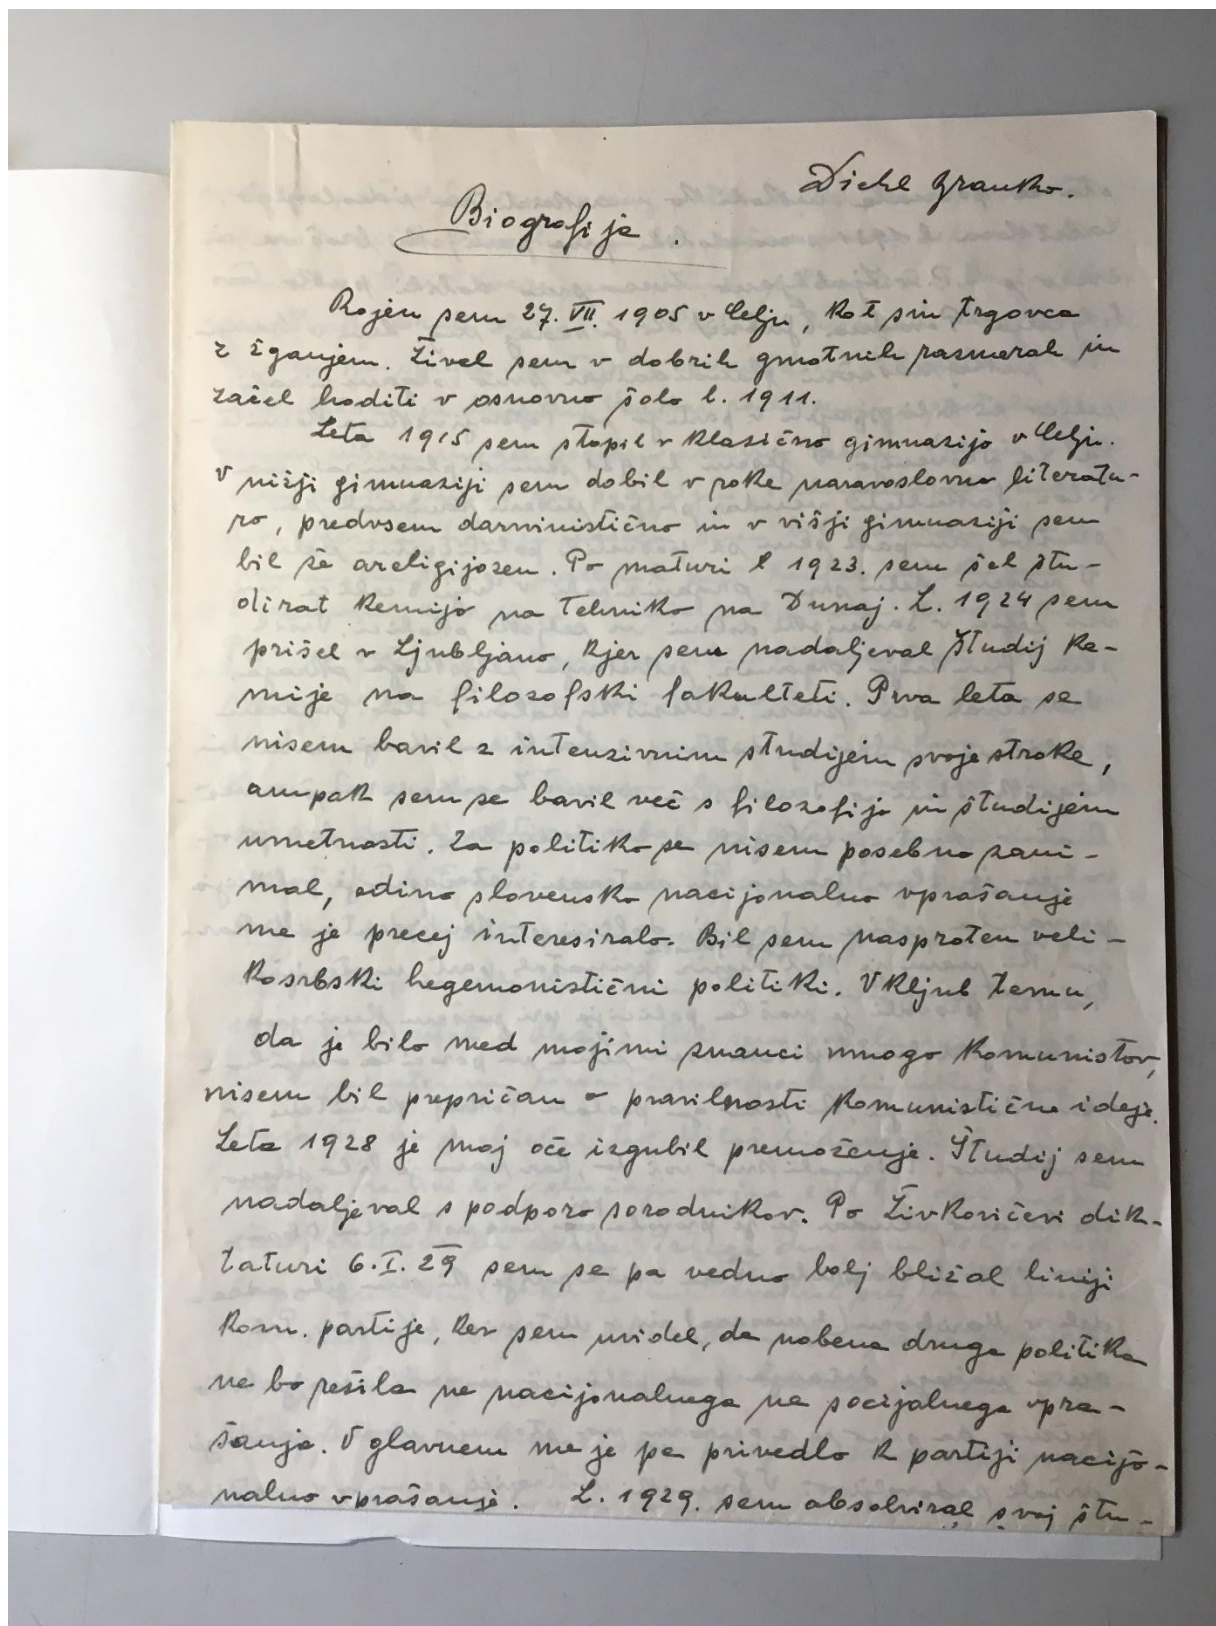 Diehl Branko.
Biografija.
Rojen sem 27. VII. 1905 v Celju, kot sin trgovca
z žganjem. Živel sem v dobrih gmotnih razmerah in
začel hoditi v osnovno šolo l. 1911.
Leta 1915 sem stopil v klasično gimnazijo v Celju.
V nižji gimnaziji sem dobil v roke naravoslovno literatu-
ro, predvsem darvinistično in v višji gimnaziji sem
bil že areligijozen. Po maturi l 1923. sem šel štu-
dirat kemijo na tehniko na Dunaj. L. 1924 sem
prišel v Ljubljano, kjer sem nadaljeval študij ke-
mije na filozofski fakulteti. Prva leta se
nisem bavil z intenzivnim študijem svoje stroke,
ampak sem se bavil več s filozofijo in študijem
umetnosti. Za politiko se nisem posebno zani-
mal, edino slovensko nacijonalno vprašanje
me je precej interesiralo. Bil sem nasproten veli-
kosrbski hegemonistični politiki. Vkljub temu,
da je bilo med mojimi znanci mnogo komunistov,
nisem bil prepričan o pravilnosti komunistične ideje.
Leta 1928 je moj oče izgubil premoženje. Študij sem
nadaljeval s podporo sorodnikov. Po Živkovičevi dik-
taturi 6. I. 29 sem se pa vedno bolj bližal liniji
kom. partije, ker sem uvidel, da nobena druga politika
ne bo rešila ne nacijonalnega ne socijalnega vpra-
šanja. V glavnem me je pa privedlo k partiji nacijo-
nalno vprašanje. L. 1929. sem absolviral svoj štu-